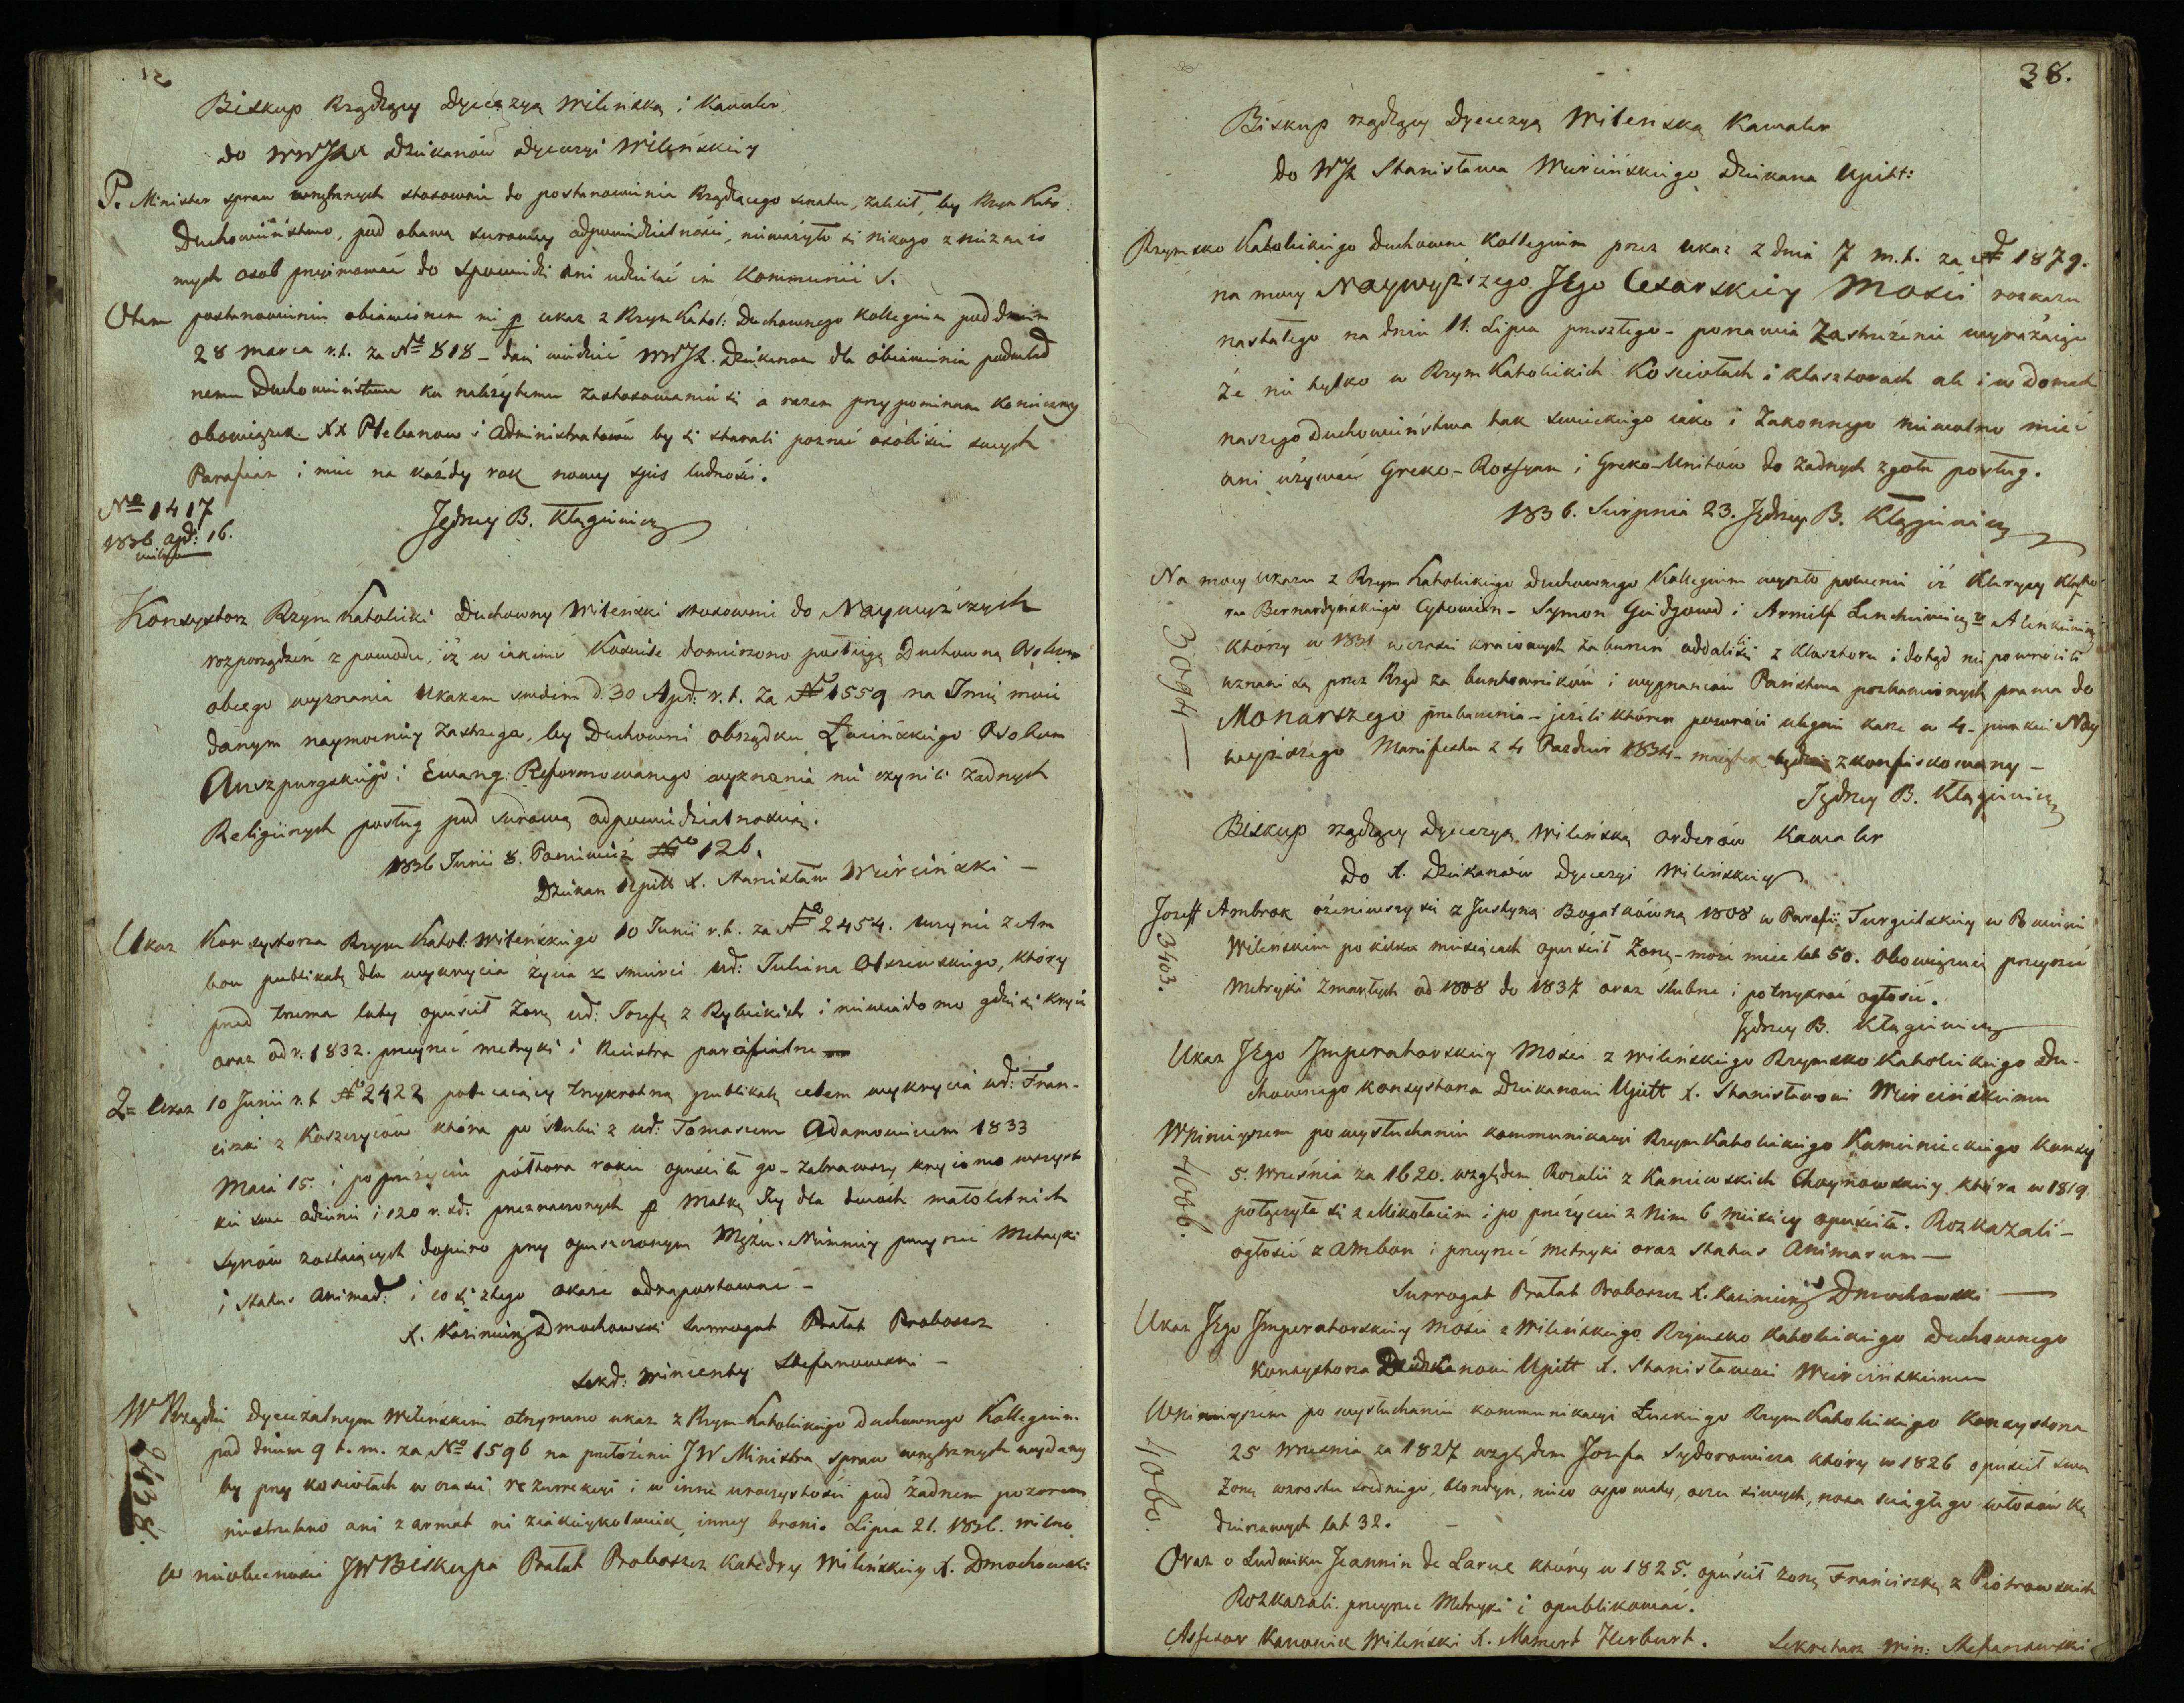 Biskup Rządzący Dyecezyą Wileńską i Kawaler
do WWJX Dziekanów Dyecezyi Wileńskiey
P. Minister spraw wewnętrznych stosownie do postanowienia Rządzącego Senatu, zalecił, by Rzym Kato:
Duchowieństwo, pod obawą surowey odpowiedzialności, nieważyło się nikogo z nieznaio
mych osob przyimować do spowiedzi ani udzielać im Kommunii S.
O tem postanowieniu obiawionem mi p ukaz z Rzym Katol: Duchownego Kollegium pod dniem
28 Marca r.t. za No 818 – daię wiedzieć WWJX. Dziekanom dla obiawienia podwład
nemu Duchowieństwu ku należytemu zastosowaniu się a razem przypominam konieczny
obowiązek XX Plebanow i Administratorów by się starali poznać osobiście swych
Parafian i mieć na każdy rok nowy spis ludności.
No 1417
1836 apr: 16.
Jędrzey B. Kłągiewicz
Konsystorz Rzym Katolicki Duchowny Wileński stosownie do Naywyższych
rozporządzeń z powodu, iż w iakimś Kościele domierzono posługę Duchowną Osobom
obcego wyznania Ukazem swoim d. 30 Apr. r.t. za No 1559 na Imię moie
danym naymocniey zastrzega, by Duchowni obrządku Łacińskiego Osobom
Auszpurgskiego i Ewang: Reformowanego wyznania nie czynili żadnych
Religiinych posług pod surową odpowiedzialnością.
1836 Junii 8. Poniewież No 126.
Dziekan Upitt X. Stanisław Weirciński –
Ukaz Konsystorza Rzym Katol: Wileńskiego 10 Junii r.t. za No 2454. uczynić z Am
bon publikatę dla wykrycia życia z śmierci ur: Juliana Olszewskiego, który
przed trzema laty opuścił Zonę ur: Jozefę z Rybickich i niewiadomo gdzie się kryie
oraz od r. 1832. przeyrzeć metryki i Reiestra parafialne
2= Ukaz 10 Junii r.t No 2422 polecaiący trzykrotną publikatę celem wykrycia ur: Fran-
ciszki z Koszczyców która po ślubie z ur: Tomaszem Adamowiczem 1833
Maia 15. i po pożyciu półtora roku opuściła go – zabrawszy kryiomo wszyst
kie swe odzienie i 120 r. sr: przeznaczonych p Matkę Jey dla dwoch małoletnich
Synów zostaiących dopiero przy opuszczonym Mężu. Niemniey przeyrzeć Metryki
i Status Animar: i co się z tego okaże odraportować –
X. Kazimierz Dmochowski Surrogat Prałat Proboszcz
Sekr: Wincenty Stefanowski –
W Rządzie Dyecezalnym Wileńskim otrzymano ukaz z Rzym-Katolickiego Duchownego Kollegium
pod dniem 9 t.m. za No 1596 na przełożenie JW Ministra spraw wewnętrznych wydany
by przy kościołach w czasie rezurrekcyi i w inne uroczystości pod żadnem pozorem
niestrzelano ani z armat ni z iakieykolwiek inney broni. Lipca 21. 1836. Wilno
2438.
w niebecności JW Biskupa Prałat Proboszcz Katedry Wileńskiey X. Dmochowski
38.
Biskup rządzący Dyecezyą Wileńską Kawaler
do WJX Stanisława Weircińskiego Dziekana Upitt:
Rzymsko Katolickiego Duchowne Kollegium przez ukaz z dnia 7 m.t. za No 1879.
na mocy Naywyższego JEgo Cesarskiey Mości rozkazu
nastałego na dniu 11. Lipca przeszłego – ponawia Zastrzeżenie wyrażaiąc
że nie tylko w Rzym Katolickich Kościołach i klasztorach ale i w domach
naszego Duchowieństwa tak świeckiego iako i Zakonnego niewolno mieć
ani używać Greko-Rossyan i Greko-Unitów do żadnych zgoła posług.
1836. Sierpnia 23. Jędrzey B. Kłągiewicz
Na mocy ukazu z Rzym Katolickiego Duchownego Kollegium wyszło polecenie iż Klerycy Klaszto
ru Bernardyńskiego Cytowian – Symon Giedgowd i Armilf Lenchiewicz v Alenkiewicz
którzy w 1831 w czasie kraiowych zaburzeń oddalili się z Klasztoru i dotąd nie powrócili
uznani są przez Rząd za buntowników i wygnańców Państwa pozbawionych prawa do
Monarszego przebaczenia – jeżeli który powróci ulegnie karze w 4. punkcie Nay
wyższego Manifestu z 4 Paździer 1834 – maiątek będzie zkonfiskowany –
3094 –
Jędrzey B. Kłągiewicz
Biskup rządzący Dyecezyą Wileńską orderów Kawaler
do X. Dziekanów Dyecezyi Wileńskiey
Jozeff Ambrok ożeniwszy się z Justyną Bogatkówną 1808 w Parafii Turgielskiey w Powiecie
Wileńskim po kilku miesiącach opuścił Zonę – może mieć lat 50. Obowiązuię przeyrzeć
Metryki Zmarłych od 1808 do 1837 oraz ślubne i potrzykroć ogłosić.
3403.
Jędrzey B. Kłągiewicz
Ukaz JEgo Imperatorskiey Mości z Wileńskiego Rzymsko Katolickiego Du-
chownego konsystorza Dziekanowi Upitt X. Stanisławowi Weircińskiemu
W Niniejszem po wysłuchaniu kommunikacyi Rzym Katolickiego Kamienieckiego Konsy
5. Września za 1620. względem Rozalii z Kaniewskich Choynowskiey która w 1819
połączyła się z Mikołaiem i po pożyciu z Nim 6 miesięcy opuściła. Rozkazali –
ogłosić z Ambon i przeyrzeć metryki oraz Status Animarum –
4066.
Surrogat Prałat Proboszcz X. Kazimierz Dmochowski –
Ukaz JEgo Imperatorskiey Mości z Wileńskiego Rzymsko Katolickiego Duchownego
Konsystorza Dziekanowi Upitt X. Stanisławowi Weircińskiemu
W Niniejszem po wysłuchaniu kommunikacyi Łuckiego Rzym Katolickiego Konsystorza
25 Września za 1827 względem Jozefa Sydorowicza który w 1826 opuścił swą
Zonę wzrostu średniego, blondyn, nieco ospowaty, oczu siwych, nosa ściągłego włosów kę
dzierzawych lat 32. –
4060.
Oraz o Ludwiku Jeannin de Larue który w 1825. opuścił żonę Franciszkę z Piotrowskich
Rozkazali przeyrzeć Metryki i opublikować.
Assesor Kanonik Wileński X. Mamert Herburt. Sekretarz Win: Stefanowski